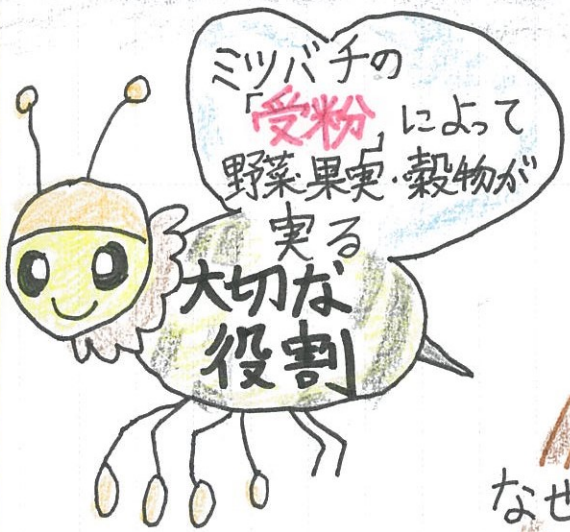 ミツバチの
「受粉」によって
野菜・果実・穀物が
実る
大切な
役割
なぜ